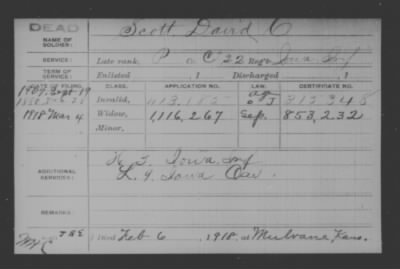 DEAD
NAME OF SOLDIER:
Scott David C
SERVICE:
Late rank, P Co C 22 Reg't Iowa Inf
TERM OF SERVICE:
Enlisted , 1 Discharged , 1
DATE OF FILING. CLASS. APPLICATION NO. LAW. CERTIFICATE NO.
1907 Sept 19
Invalid, 413,182 312,348
1918 Mar 4 Widow, 1,116,267 Sep. 853,232
Minor,
ADDITIONAL SERVICES:
K 7 Iowa Inf
L 9 Iowa Cav.
REMARKS:
Died Feb 6, 1918, at Mulvane, Kans.